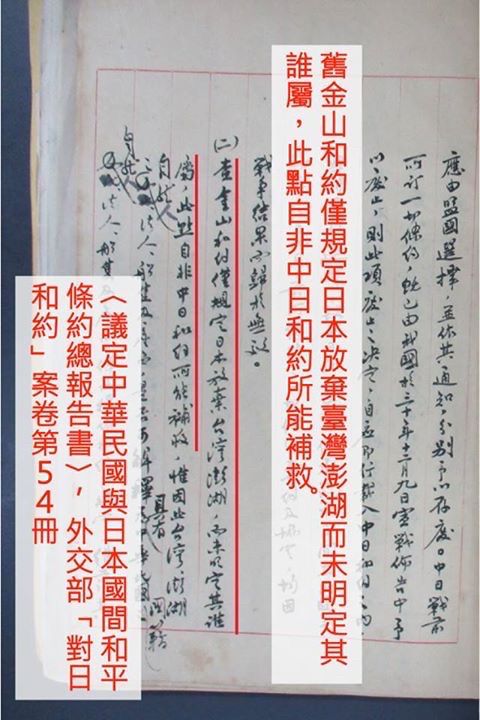 應由盟國選擇,並依其通知,分別予以存廢。中日戰前
所訂一切條約,既已由我國於三十年十二月九日宣戰佈告中予
以廢止,則此項廢止之決定,自應即行載入中日和約之內
舊金山和約僅規定日本放棄臺灣澎湖而未明定其
誰屬,此點自非中日和約所能補救。
戰事結果而歸於無效。
(二)查金山和約僅規定日本放棄台灣澎湖,而未明定其誰
屬,此點自非中日和約所能補救,惟因此台灣、澎湖
自然人
法人
具有
自然人
法人
〈議定中華民國與日本國間和平
條約總報告書〉,外交部「對日
和約」案卷第54冊